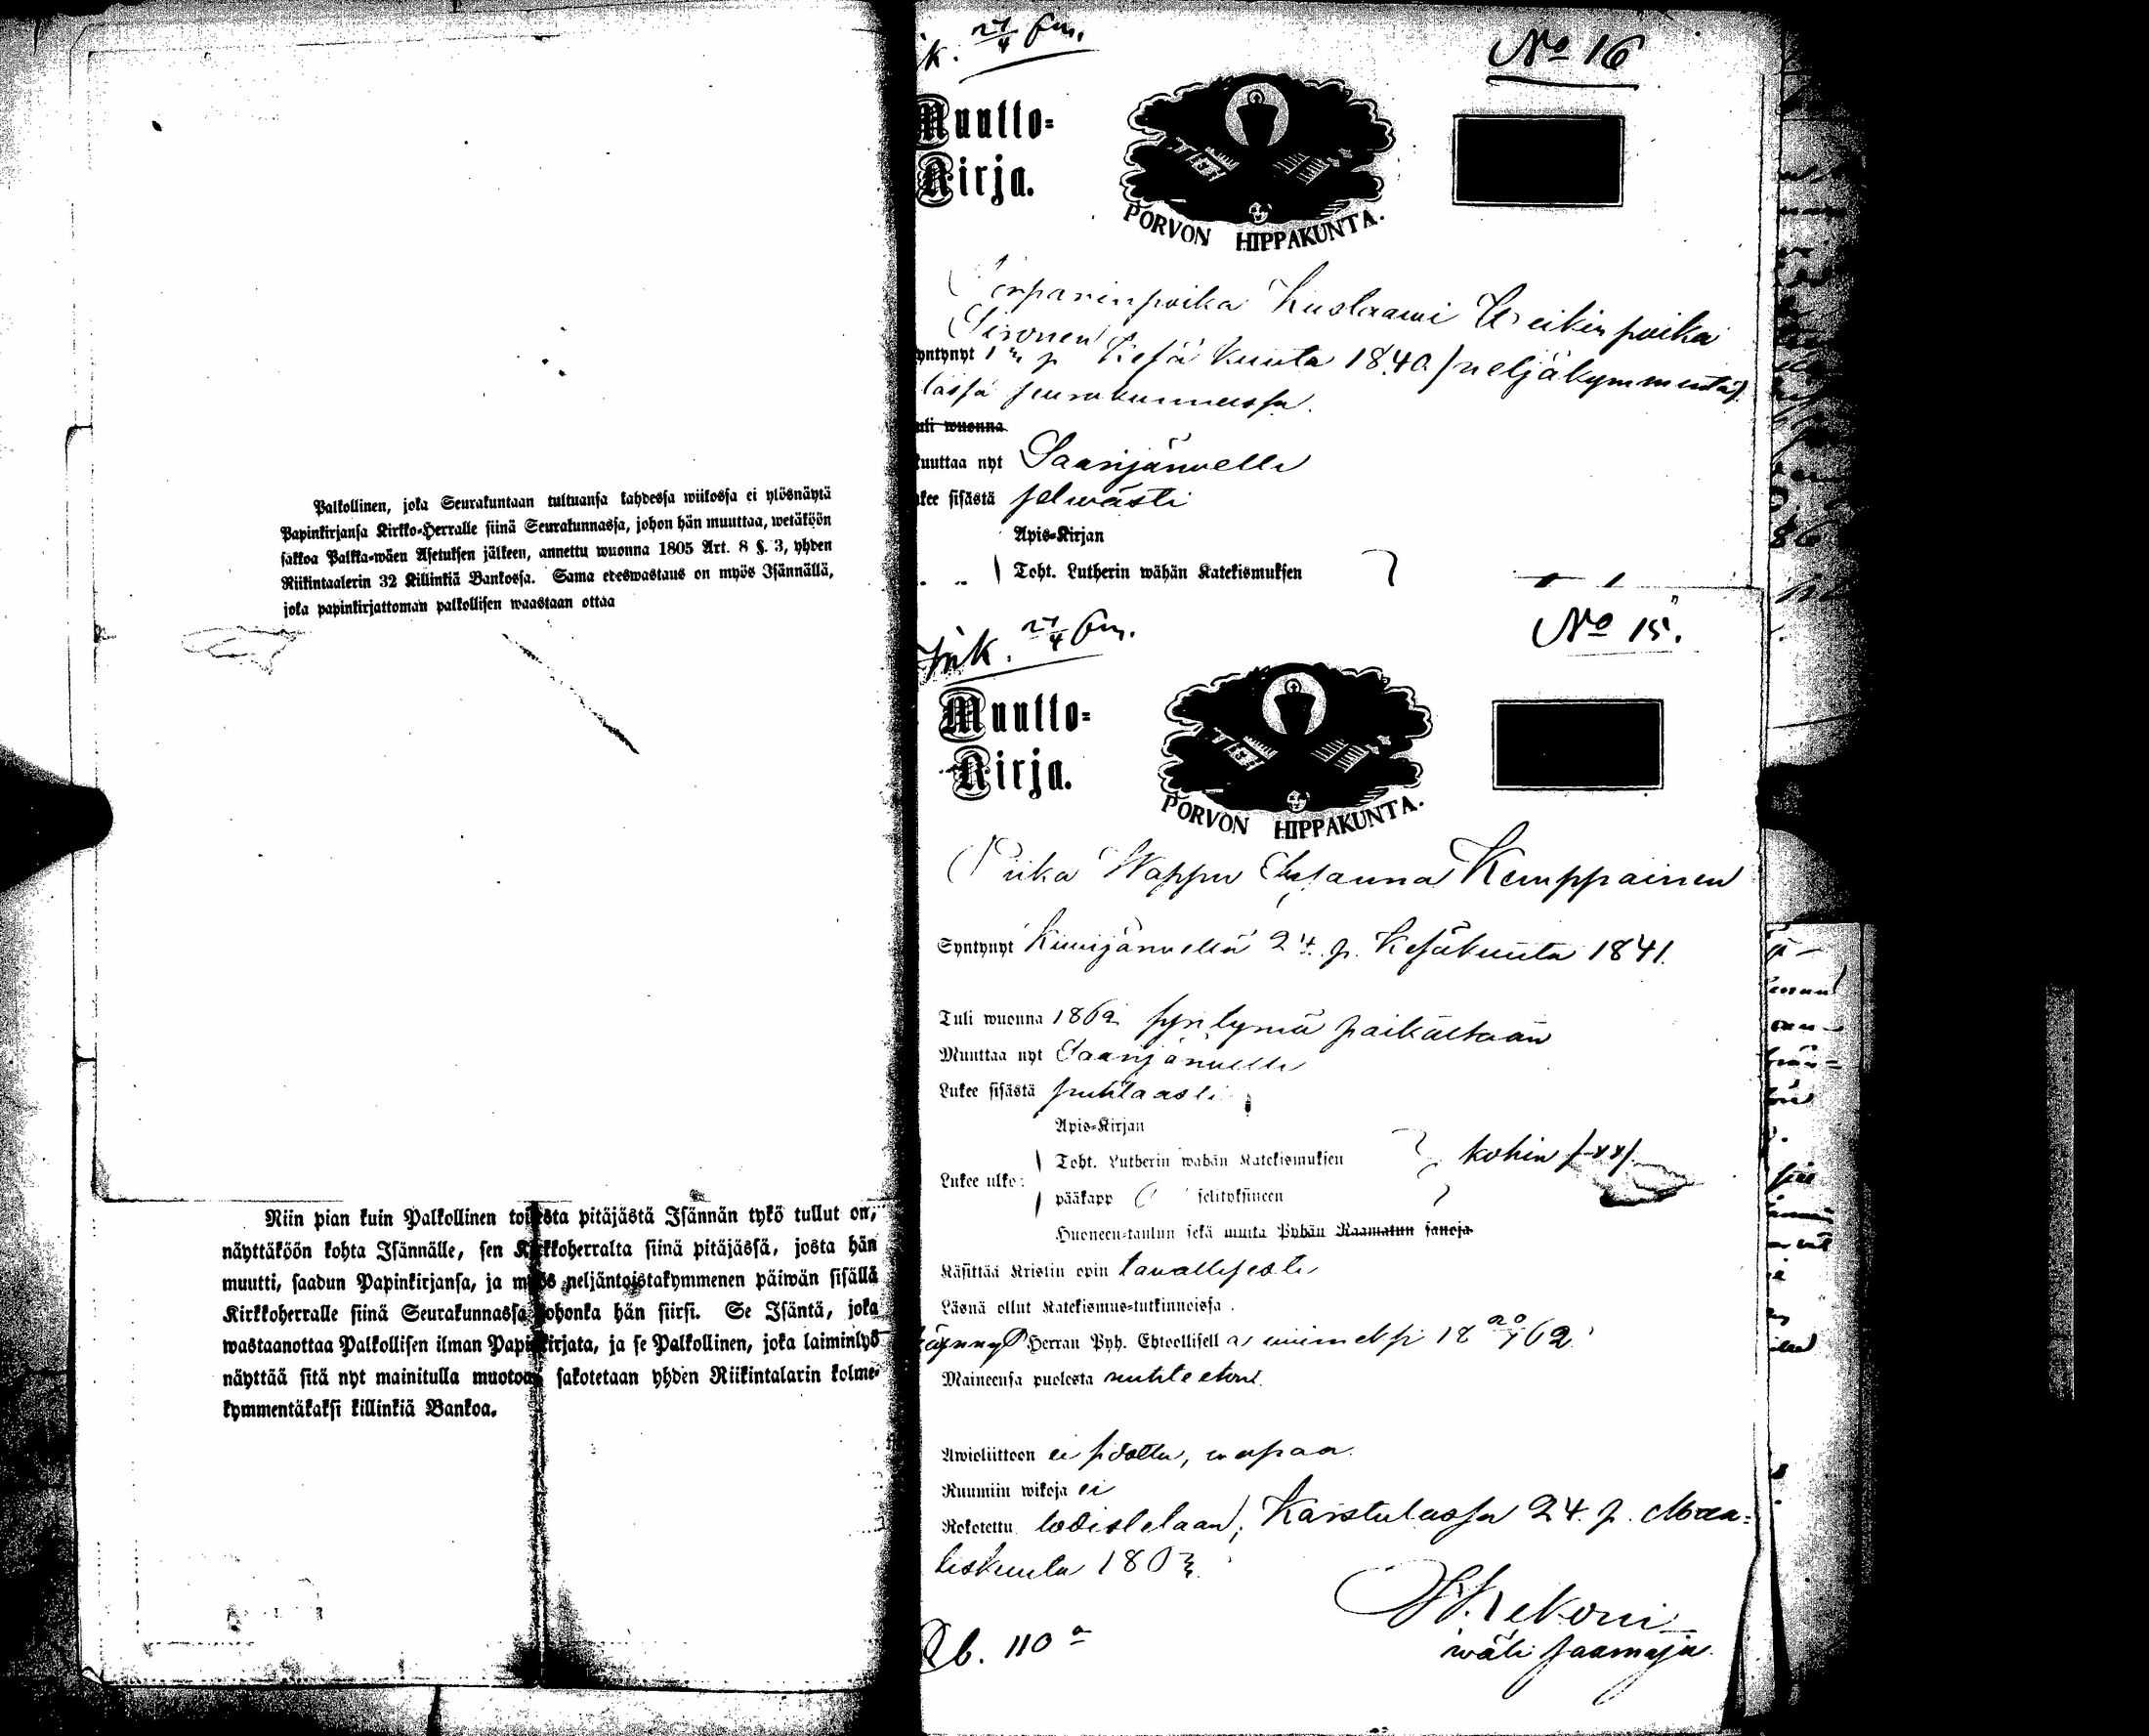 Palkollinen, joka Seurakuntaan tultuansa kahdessa wiikossa ei ylösnäytä
Papinkirjansa Kirkko-Herralle siinä Seurakunnassa, johon hän muuttaa, wetäköön
sakkoa Palkka-wäen Asetuksen jälkeen, annettu wuonna 1805 Art. 8 §. 3, yhden
Riikintaalerin 32 Killinkiä Bankossa. Sama edeswastaus on myös Isännällä,
joka papinkirjattoman palkollisen waastaan ottaa
Niin pian kuin Palkollinen toisesta pitäjästä Isännän tykö tullut on,
näyttäköön kohta Isännälle, sen Kirkkoherralta siinä pitäjässä, josta hän
muutti, saadun Papinkirjansa, ja myös neljäntoistakymmenen päiwän sisällä
Kirkkoherralle siinä Seurakunnassa johonka hän siirsi. Se Isäntä, joka
wastaanottaa Palkollisen ilman Papinkirjata, ja se Palkollinen, joka laiminlyö
näyttää sitä nyt mainitulla muotoa, sakotetaan yhden Riikintalarin kolme-
kymmentäkaksi killinkiä Bankoa.
No 16
Muutto-
Kirja.
PORVON HIPPAKUNTA.
Kustaawi Weikinpoika
Sironen
Syntynyt 1 p Kesäkuuta 1840 /neljäkymmentä/
tässä seurakunnassa.
Tuli wuonna
Muuttaa nyt Saarijärwelle
Lukee sisästä selwästi
Apis-Kirjan
Toht. Lutherin wähän Katekismuksen
No 15.
Ink. 27/4 6
Muutto-
Kirja.
PORVON HIPPAKUNTA.
Piika Wappu Susanna Kemppainen
Syntynyt Kiwijärwellä 24. p. Kesäkuuta 1841.
Tuli wuonna 1862 syntymä paikaltaan
Muuttaa nyt Saarijärwelle
Lukee sisästä puhtaasti
Apis-Kirjan
Toht. Lutherin wähän Katekismuksen
Lukee ulkoa kohin
pääkapp selityksineen
Huoneen-taulun sekä muita Pyhän Raamatun sanoja
Käsittää Kristin opin tawallisesti
Läsnä ollut Katekismus-tutkinnoissa
Käynyt Herran Pyh. Ehtoollisella wiimeksi 18 62
Maineensa puolesta nuhteetoin.
Awioliittoon ei sidottu, wapaa.
Ruumiin wikoja ei
Rokotettu todistetaan; Karstulassa 24. p. Maa-
liskuuta 1863.
K. Rekoni
wäli saarnaja.
Rb. 110 a